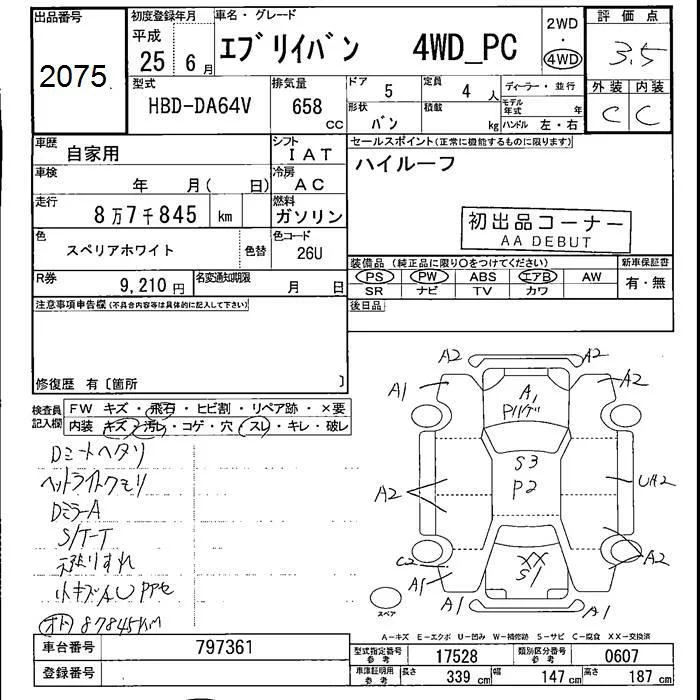 出品番号
2075
初度登録年月
平成
25年 6月
車名・グレード
エブリイバン 4WD_PC
2WD
・
4WD
評価点
3.5
外装 内装
C C
型式
HBD-DA64V
排気量
658 cc
ドア 5
定員 4 人
形状 バン
積載 kg
ディーラー・並行
モデル年式 年
ハンドル 左・右
車歴 自家用
シフト IAT
車検 年 月( 日)
冷房 AC
走行 8万7千845 km
燃料 ガソリン
色 スペリアホワイト
色替
色コード 26U
R券 9,210 円
名変通知期限 月 日
セールスポイント(正常に機能するものに限ります)
ハイルーフ
初出品コーナー
AA DEBUT
装備品(純正品に限り○をつけてください)
新車保証書
PS PW ABS エアB AW
SR ナビ TV カワ
有・無
後日品
注意事項申告欄(不具合内容等は具体的に記入して下さい)
修復歴 有〔箇所 〕
検査員記入欄
FW キズ・飛石・ヒビ割・リペア跡・×要
内装 キズ・汚レ・コゲ・穴・スレ・キレ・破レ
Dミートヘタリ
ヘットライトクモリ
DミラーA
S/T-T
小キズAU PPセ
メト 87845KM
A2 A2
A1 A2
A1
Pハゲ
S3
P2
A2
UA2
C2 A2
XX
S1
A1
A1 A1
スペア
A-キズ E-エクボ U-凹み W-補修跡 S-サビ C-腐食 XX-交換済
車台番号 797361
登録番号
型式指定番号 参考 17528
類別区分番号 参考 0607
車検証明用 参考 長さ 339 cm 幅 147 cm 高さ 187 cm